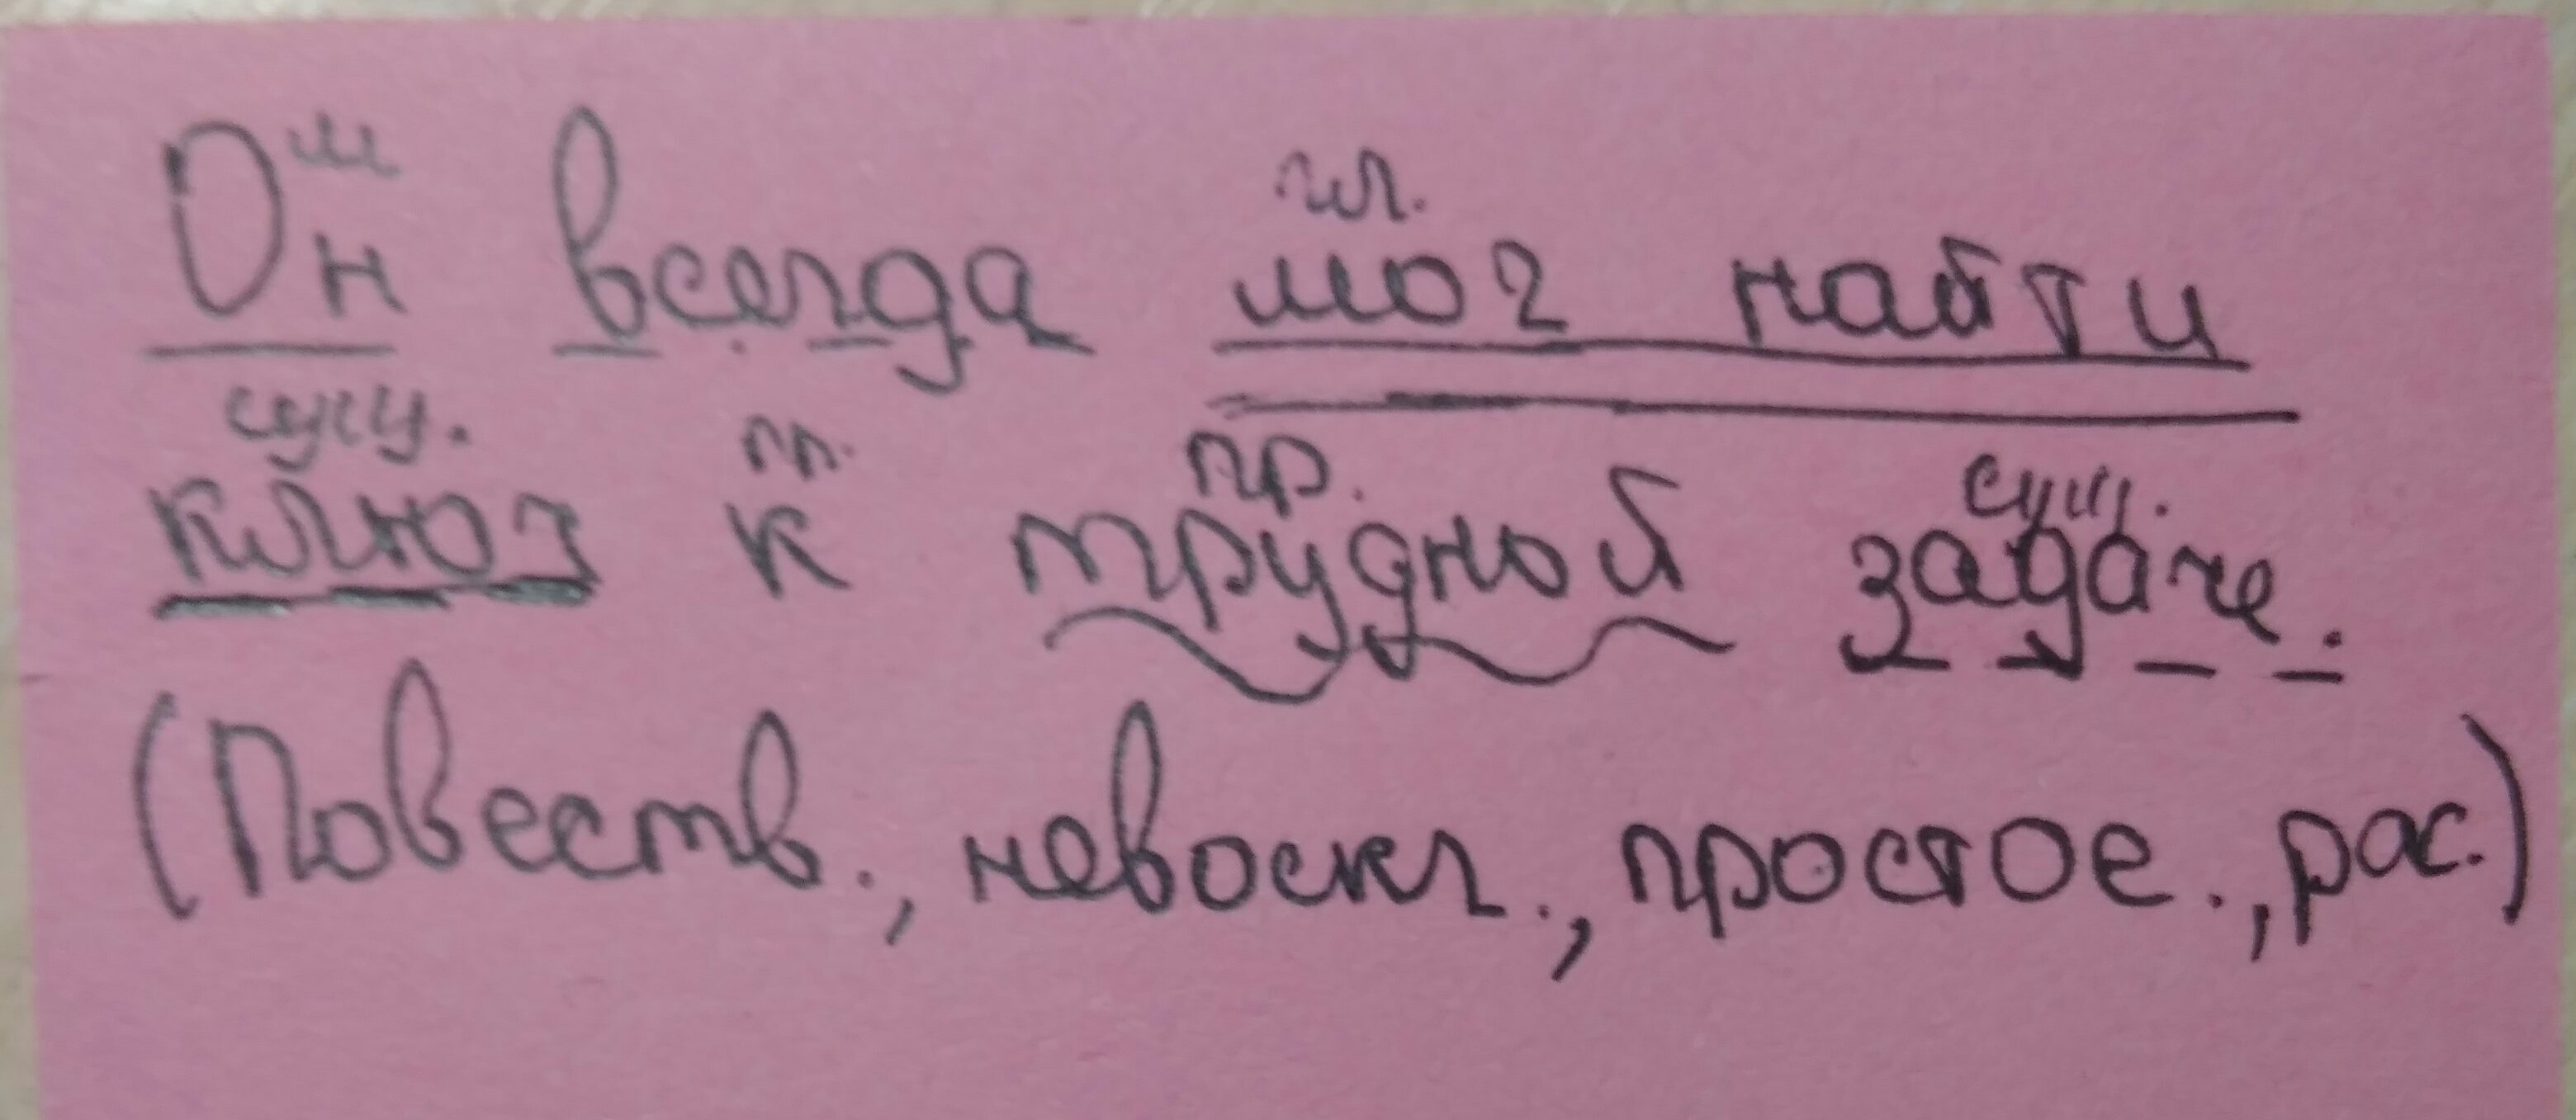 м
гл.
Он всегда мог найти
сущ. п. пр. сущ.
ключ к трудной задаче.
(Повеств., невоскл., простое., рас.)